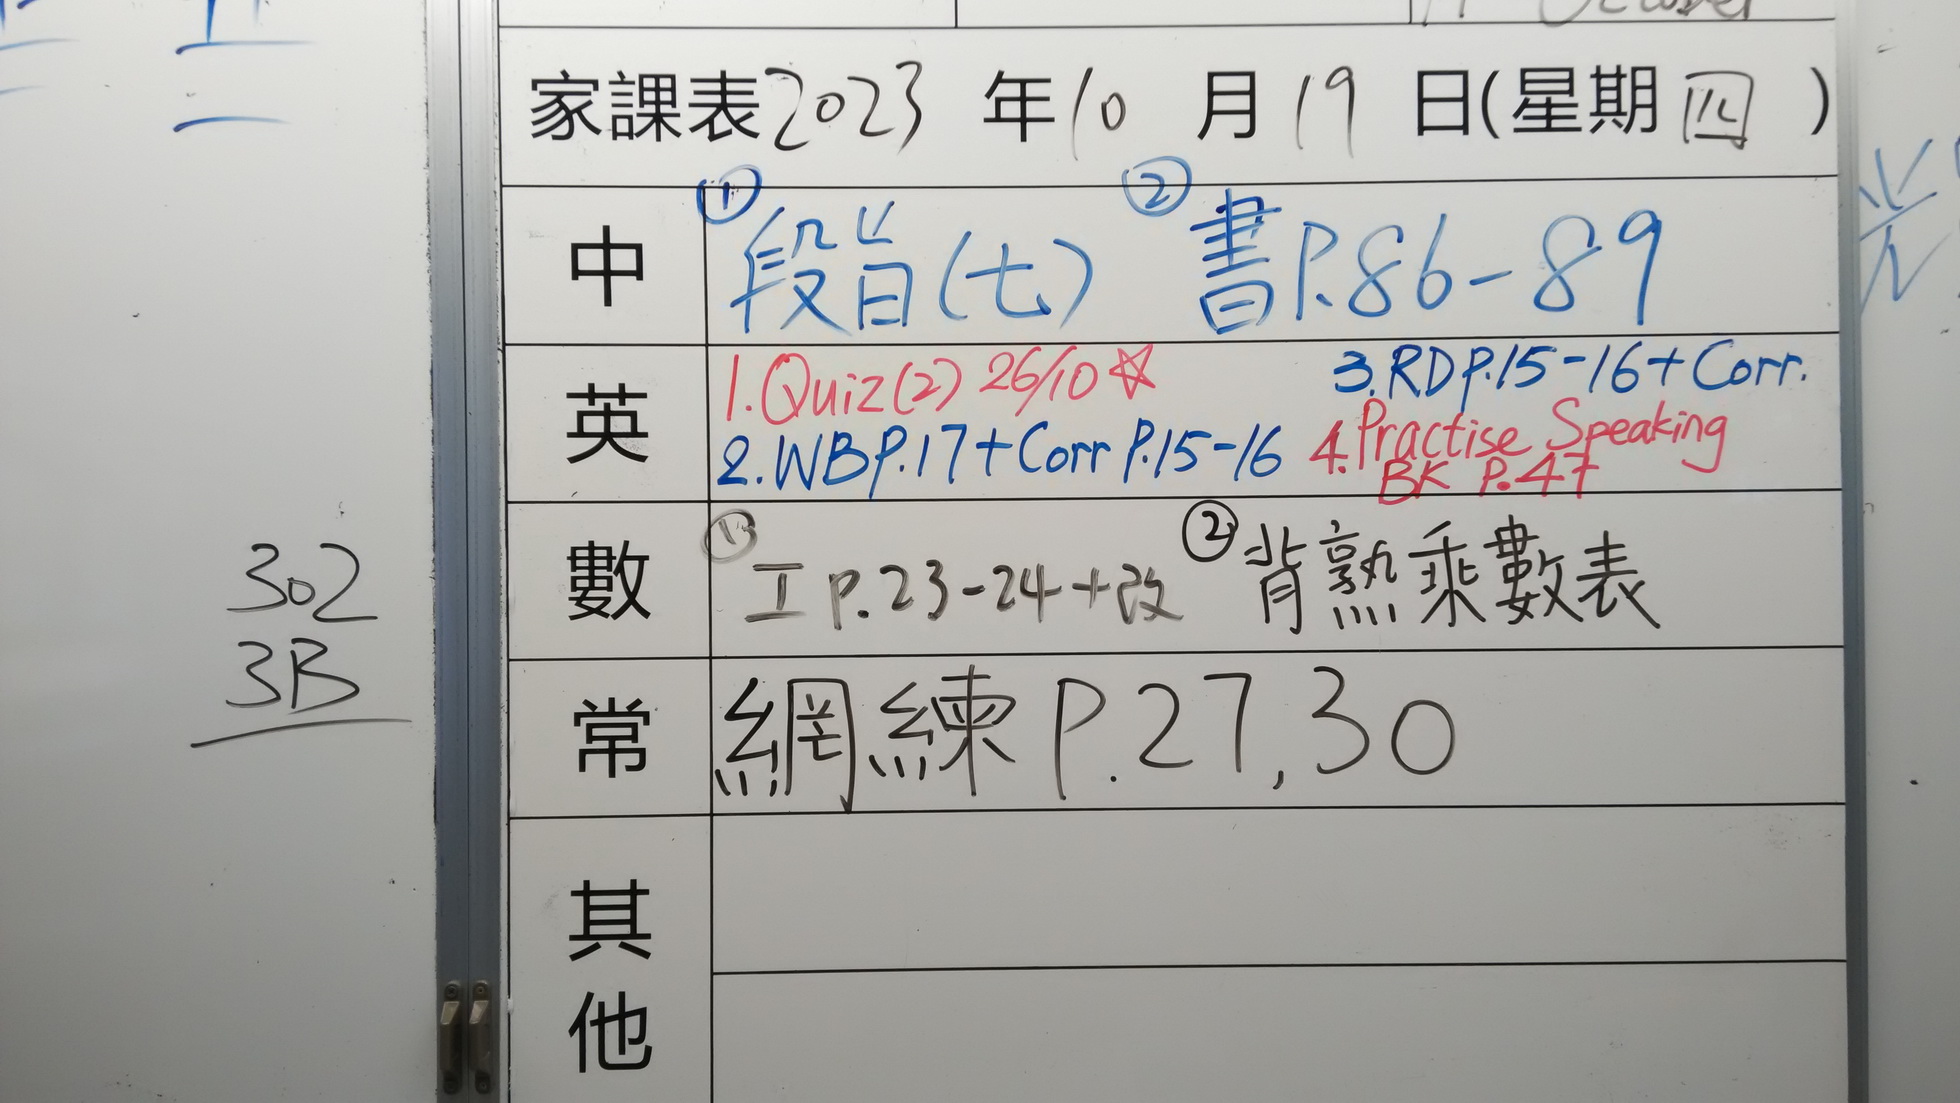 October
家課表2023年10月19日(星期四)
中 ①段旨(七) ②書P.86-89
英 1.Quiz(2) 26/10☆ 3.RD P.15-16+Corr.
2.WB P.17+Corr P.15-16 4.Practise Speaking
BK P.47
數 ①工 P.23-24+改 ②背熟乘數表
常 網練 P.27,30
其他
302
3B